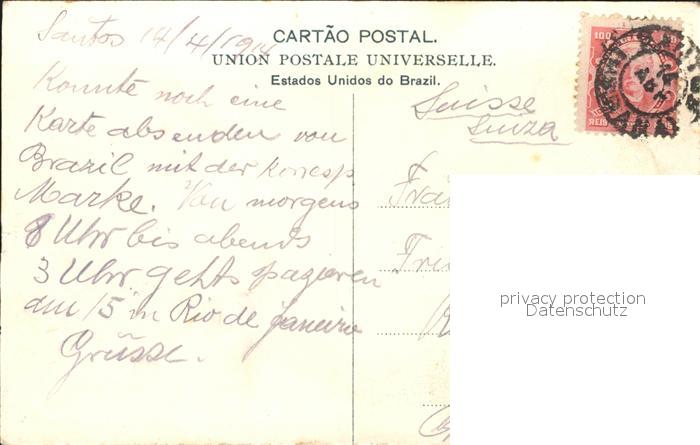 Santos 14/4/1914
CARTÃO POSTAL.
UNION POSTALE UNIVERSELLE.
Estados Unidos do Brazil.
100
REIS
Konnte noch eine
Karte absenden von
Brazil mit der korresp
Marke. Von morgens
8 Uhr bis abends
3 Uhr gehts spazieren
am 15 in Rio de janeiro
Grüsse.
Suisse
Suiza
privacy protection
Datenschutz